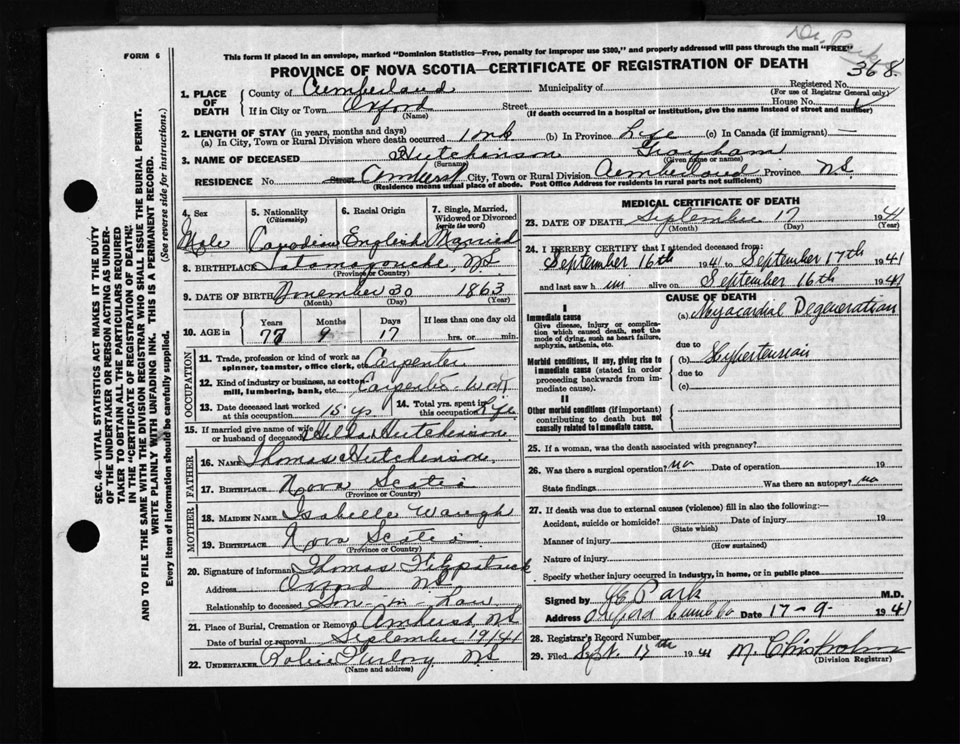 Dr. Park
FORM 6
This form if placed in an envelope, marked "Dominion Statistics—Free, penalty for improper use $300," and properly addressed will pass through the mail "FREE"
368.
PROVINCE OF NOVA SCOTIA—CERTIFICATE OF REGISTRATION OF DEATH
1. PLACE OF DEATH
County of Cumberland Municipality of Registered No.
(For use of Registrar General only)
If in City or Town Oxford Street House No.
(Name) (If death occurred in a hospital or institution, give the name instead of street and number)
2. LENGTH OF STAY (in years, months and days)
(a) In City, Town or Rural Division where death occurred 1 wk (b) In Province Life (c) In Canada (if immigrant) —
3. NAME OF DECEASED Hutchinson Grayham
(Surname) (Given name or names)
RESIDENCE No. Street Amherst City, Town or Rural Division Cumberland Province N.S.
(Residence means usual place of abode. Post Office Address for residents in rural parts not sufficient)
SEC. 46—VITAL STATISTICS ACT MAKES IT THE DUTY
OF THE UNDERTAKER OR PERSON ACTING AS UNDER-
TAKER TO OBTAIN ALL THE PARTICULARS REQUIRED
IN THE "CERTIFICATE OF REGISTRATION OF DEATH,"
AND TO FILE THE SAME WITH THE DIVISION REGISTRAR WHO SHALL ISSUE THE BURIAL PERMIT.
WRITE PLAINLY WITH UNFADING INK. THIS IS A PERMANENT RECORD.
Every item of information should be carefully supplied. (See reverse side for instructions.)
4. Sex
Male
5. Nationality
(Citizenship)
Canadean
6. Racial Origin
English
7. Single, Married,
Widowed or Divorced
(write the word)
Married
8. BIRTHPLACE Tatamagouche, N.S.
(Province or Country)
9. DATE OF BIRTH November 30 1863
(Month) (Day) (Year)
10. AGE in Years Months Days If less than one day old
77 9 17 hrs. or min.
OCCUPATION
11. Trade, profession or kind of work as
spinner, teamster, office clerk, etc. Carpenter
12. Kind of industry or business, as cotton
mill, lumbering, bank, etc. Carpenter Work
13. Date deceased last worked
at this occupation 15 ys
14. Total yrs. spent in
this occupation Life
15. If married give name of wife
or husband of deceased Hutchinson
FATHER
16. NAME Thomas Hutchinson
17. BIRTHPLACE Nova Scotia
(Province or Country)
MOTHER
18. MAIDEN NAME Isabelle Waugh
19. BIRTHPLACE Nova Scotia
(Province or Country)
20. Signature of informant Thomas Fitzpatrick
Address Oxford N.S.
Relationship to deceased Son-in-Law
21. Place of Burial, Cremation or Removal Amherst N.S.
Date of burial or removal September 19/41
22. UNDERTAKER N.S.
(Name and address)
MEDICAL CERTIFICATE OF DEATH
23. DATE OF DEATH September 17 1941
(Month) (Day) (Year)
24. I HEREBY CERTIFY that I attended deceased from:
September 16th 1941 to September 17th 1941
and last saw h im alive on September 16th 1941
CAUSE OF DEATH
I
Immediate cause
Give disease, injury or complication
which caused death, not the
mode of dying, such as heart failure,
asphyxia, asthenia, etc.
(a) Myocardial Degeneration
due to
Morbid conditions, if any, giving rise to
immediate cause (stated in order
proceeding backwards from immediate
cause).
(b) Hypertension
due to
(c)
II
Other morbid conditions (if important)
contributing to death but not
causally related to immediate cause.
25. If a woman, was the death associated with pregnancy?
26. Was there a surgical operation? no Date of operation 19
State findings Was there an autopsy? no
27. If death was due to external causes (violence) fill in also the following:—
Accident, suicide or homicide? Date of injury 19
(State which)
Manner of injury
(How sustained)
Nature of injury
Specify whether injury occurred in industry, in home, or in public place
Signed by Park M.D.
Address Oxford Cumb Co Date 17-9- 1941
28. Registrar's Record Number
29. Filed Sept. 17th 1941 M. Chisholm
(Division Registrar)